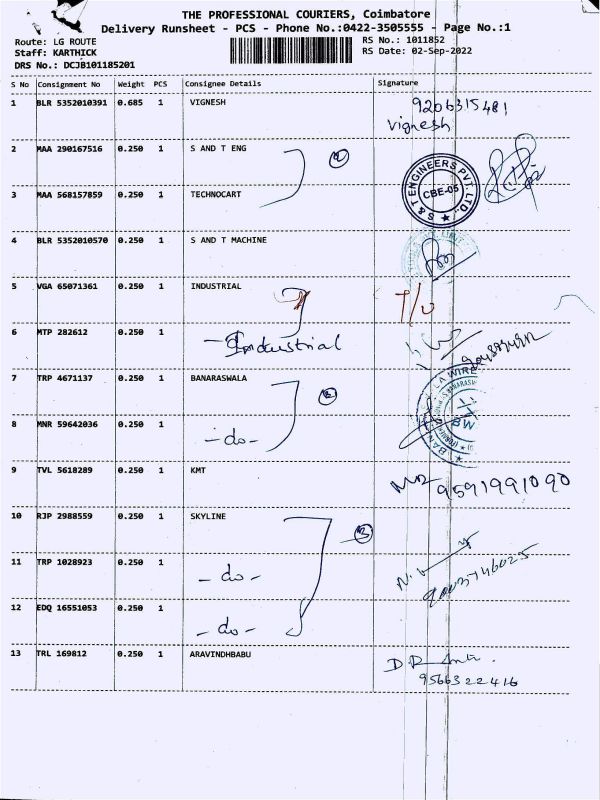 THE PROFESSIONAL COURIERS, Coimbatore
Delivery Runsheet - PCS - Phone No.:0422-3505555 - Page No.:1
Route: LG ROUTE
Staff: KARTHICK
DRS No.: DCJB101185201
RS No.: 1011852
RS Date: 02-Sep-2022
S No Consignment No Weight PCS Consignee Details Signature
1 BLR 5352010391 0.685 1 VIGNESH 9206315481
Vignesh
2 MAA 290167516 0.250 1 S AND T ENG 2
S & T ENGINEERS PVT. LTD.
CBE-05
3 MAA 568157859 0.250 1 TECHNOCART
4 BLR 5352010570 0.250 1 S AND T MACHINE
5 VGA 65071361 0.250 1 INDUSTRIAL T/O
6 MTP 282612 0.250 1 Industrial
7 TRP 4671137 0.250 1 BANARASWALA 2
BW
8 MNR 59642036 0.250 1 -do-
9 TVL 5618289 0.250 1 KMT 9591991090
10 RJP 2988559 0.250 1 SKYLINE 3
11 TRP 1028923 0.250 1 -do-
12 EDQ 16551053 0.250 1 -do-
13 TRL 169812 0.250 1 ARAVINDHBABU
9566322416